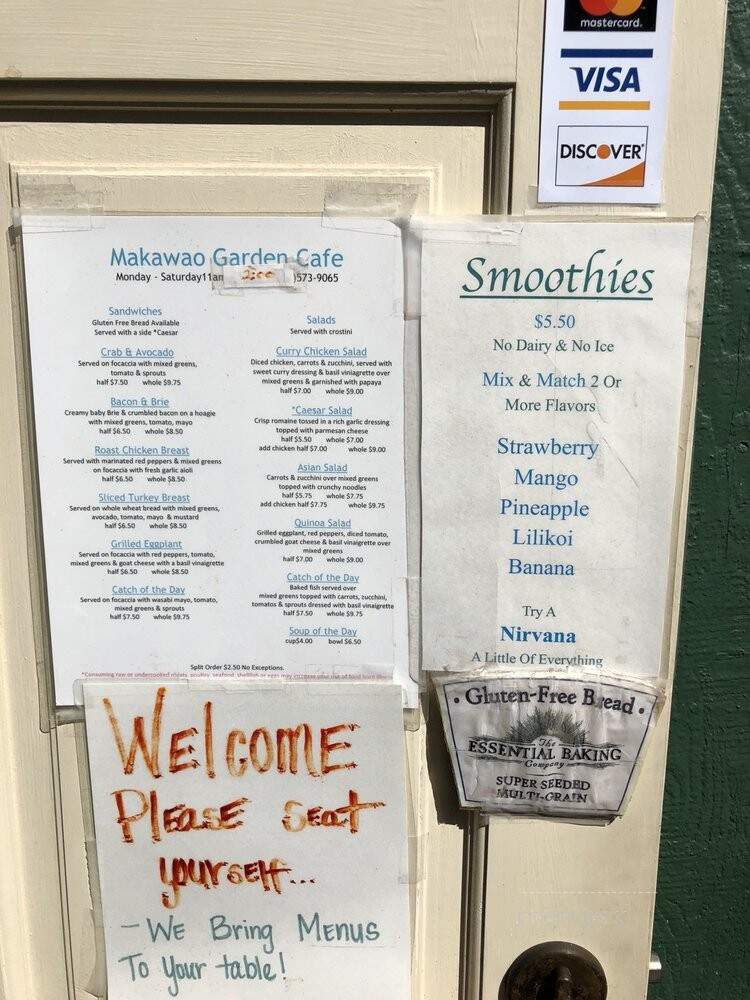 mastercard.
VISA
DISCOVER
Makawao Garden Cafe
Monday - Saturday11am
)573-9065
Sandwiches
Gluten Free Bread Available
Served with a side *Caesar
Crab & Avocado
Served on focaccia with mixed greens,
tomato & sprouts
half $7.50 whole $9.75
Bacon & Brie
Creamy baby Brie & crumbled bacon on a hoagie
with mixed greens, tomato, mayo
half $6.50 whole $8.50
Roast Chicken Breast
Served with marinated red peppers & mixed greens
on focaccia with fresh garlic aioli
half $6.50 whole $8.50
Sliced Turkey Breast
Served on whole wheat bread with mixed greens,
avocado, tomato, mayo & mustard
half $6.50 whole $8.50
Grilled Eggplant
Served on focaccia with red peppers, tomato,
mixed greens & goat cheese with a basil vinaigrette
half $6.50 whole $8.50
Catch of the Day
Served on focaccia with wasabi mayo, tomato,
mixed greens & sprouts
half $7.50 whole $9.75
Salads
Served with crostini
Curry Chicken Salad
Diced chicken, carrots & zucchini, served with
sweet curry dressing & basil viniagrette over
mixed greens & garnished with papaya
half $7.00 whole $9.00
*Caesar Salad
Crisp romaine tossed in a rich garlic dressing
topped with parmesan cheese
half $5.50 whole $7.00
add chicken half $7.00 whole $9.00
Asian Salad
Carrots & zucchini over mixed greens
topped with crunchy noodles
half $5.75 whole $7.75
add chicken half $7.75 whole $9.75
Quinoa Salad
Grilled eggplant, red peppers, diced tomato,
crumbled goat cheese & basil vinaigrette over
mixed greens
half $7.00 whole $9.00
Catch of the Day
Baked fish served over
mixed greens topped with carrots, zucchini,
tomatos & sprouts dressed with basil vinaigrette
half $7.50 whole $9.75
Soup of the Day
cup$4.00 bowl $6.50
Split Order $2.50 No Exceptions.
*Consuming raw or undercooked meats, poultry, seafood, shellfish or eggs may increase your risk of food born
Smoothies
$5.50
No Dairy & No Ice
Mix & Match 2 Or
More Flavors
Strawberry
Mango
Pineapple
Lilikoi
Banana
Try A
Nirvana
A Little Of Everything
• Gluten-Free Bread •
The
ESSENTIAL BAKING
Company
SUPER SEEDED
MULTI-GRAIN
WELCOME
PLEASE SEAT
YOURSELF...
- WE Bring MENUS
To Your table!